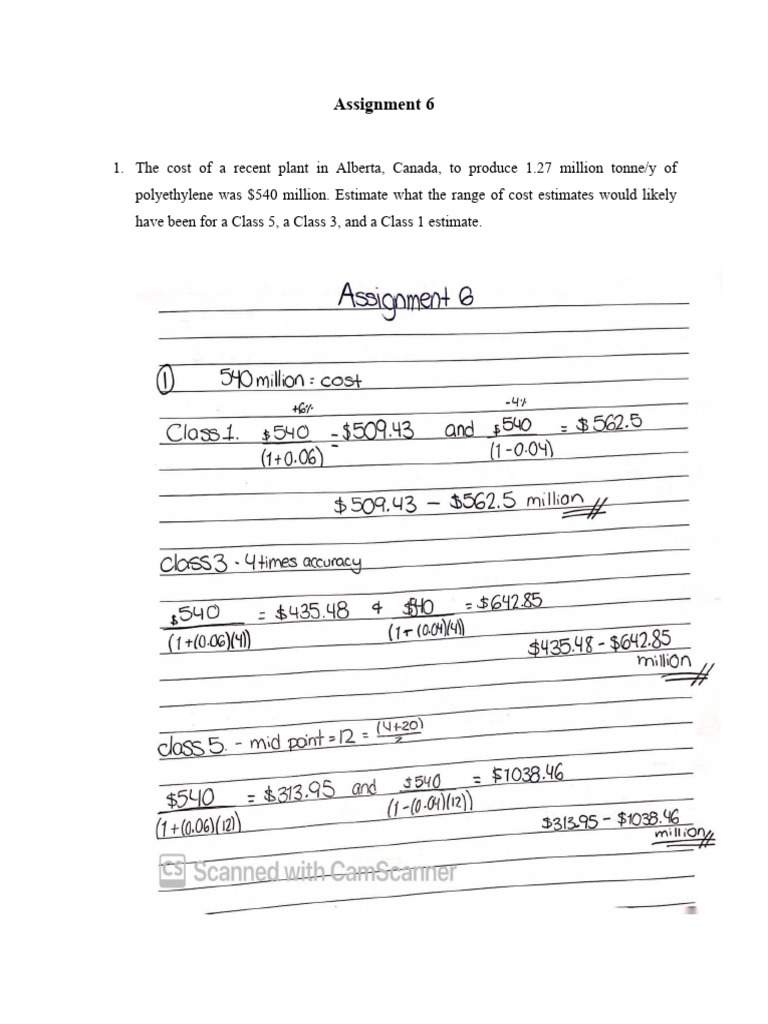 Assignment 6
1. The cost of a recent plant in Alberta, Canada, to produce 1.27 million tonne/y of
polyethylene was $540 million. Estimate what the range of cost estimates would likely
have been for a Class 5, a Class 3, and a Class 1 estimate.
Assignment 6
① 540 million = cost
+6% -4%
Class 1. $540 = $509.43 and $540 = $562.5
(1+0.06) (1-0.04)
$509.43 – $562.5 million
class 3 - 4 times accuracy
$540 = $435.48 & $540 = $642.85
(1+(0.06)(4)) (1-(0.04)(4))
$435.48 - $642.85
million
class 5. - mid point = 12 = (4+20)
2
$540 = $313.95 and $540 = $1038.46
(1+(0.06)(12)) (1-(0.04)(12))
$313.95 - $1038.46
million
CS Scanned with CamScanner